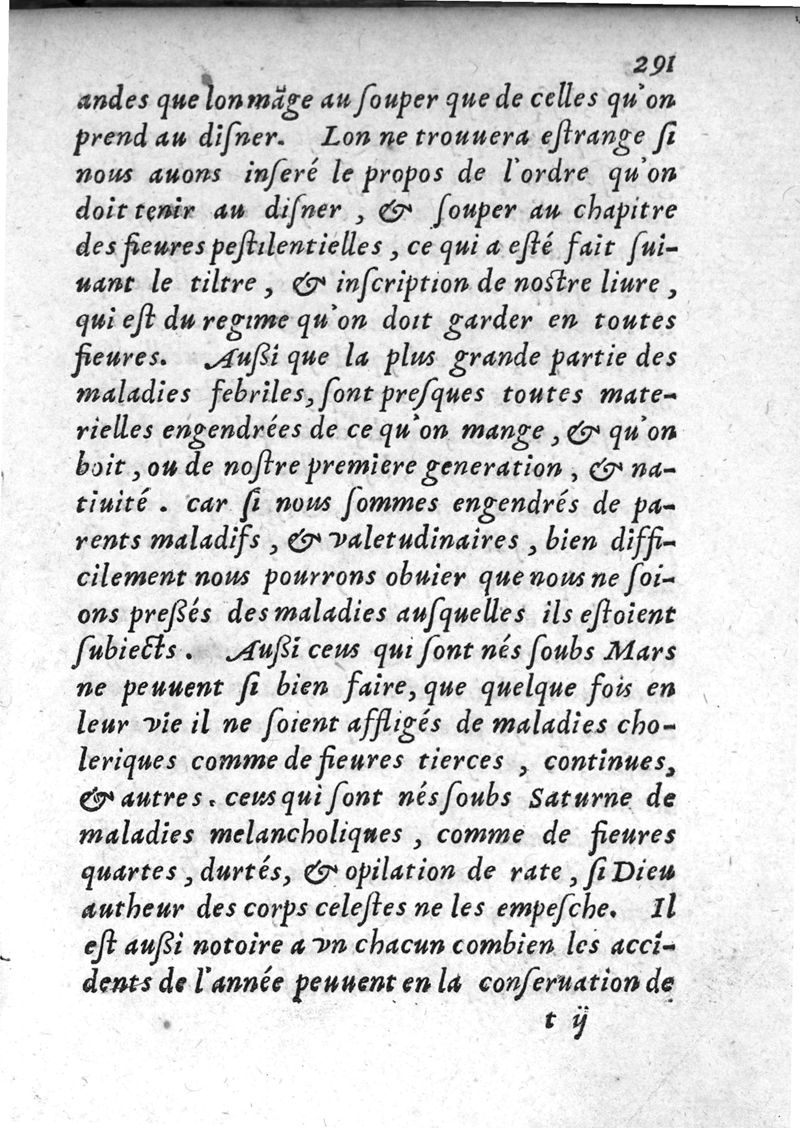 291
andes que lon mãge au ſouper que de celles qu'on
prend au diſner. Lon ne trouuera eſtrange ſi
nous auons inſeré le propos de l'ordre qu'on
doit tenir au diſner , & ſouper au chapitre
des fieures peſtilentielles , ce qui a eſté fait ſui-
uant le tiltre , & inſcription de noſtre liure ,
qui eſt du regime qu'on doit garder en toutes
fieures. Außi que la plus grande partie des
maladies febriles, ſont preſques toutes mate-
rielles engendrées de ce qu'on mange , & qu'on
boit , ou de noſtre premiere generation , & na-
tiuité . car ſi nous ſommes engendrés de pa-
rents maladifs , & valetudinaires , bien diffi-
cilement nous pourrons obuier que nous ne ſoi-
ons preßés des maladies auſquelles ils eſtoient
ſubiects . Außi ceus qui ſont nés ſoubs Mars
ne peuuent ſi bien faire, que quelque fois en
leur vie il ne ſoient affligés de maladies cho-
leriques comme de fieures tierces , continues,
& autres . ceus qui ſont nés ſoubs Saturne de
maladies melancholiques , comme de fieures
quartes , durtés, & opilation de rate , ſi Dieu
autheur des corps celeſtes ne les empeſche. Il
eſt außi notoire a vn chacun combien les acci-
dents de l'année peuuent en la conſeruation de
t ij